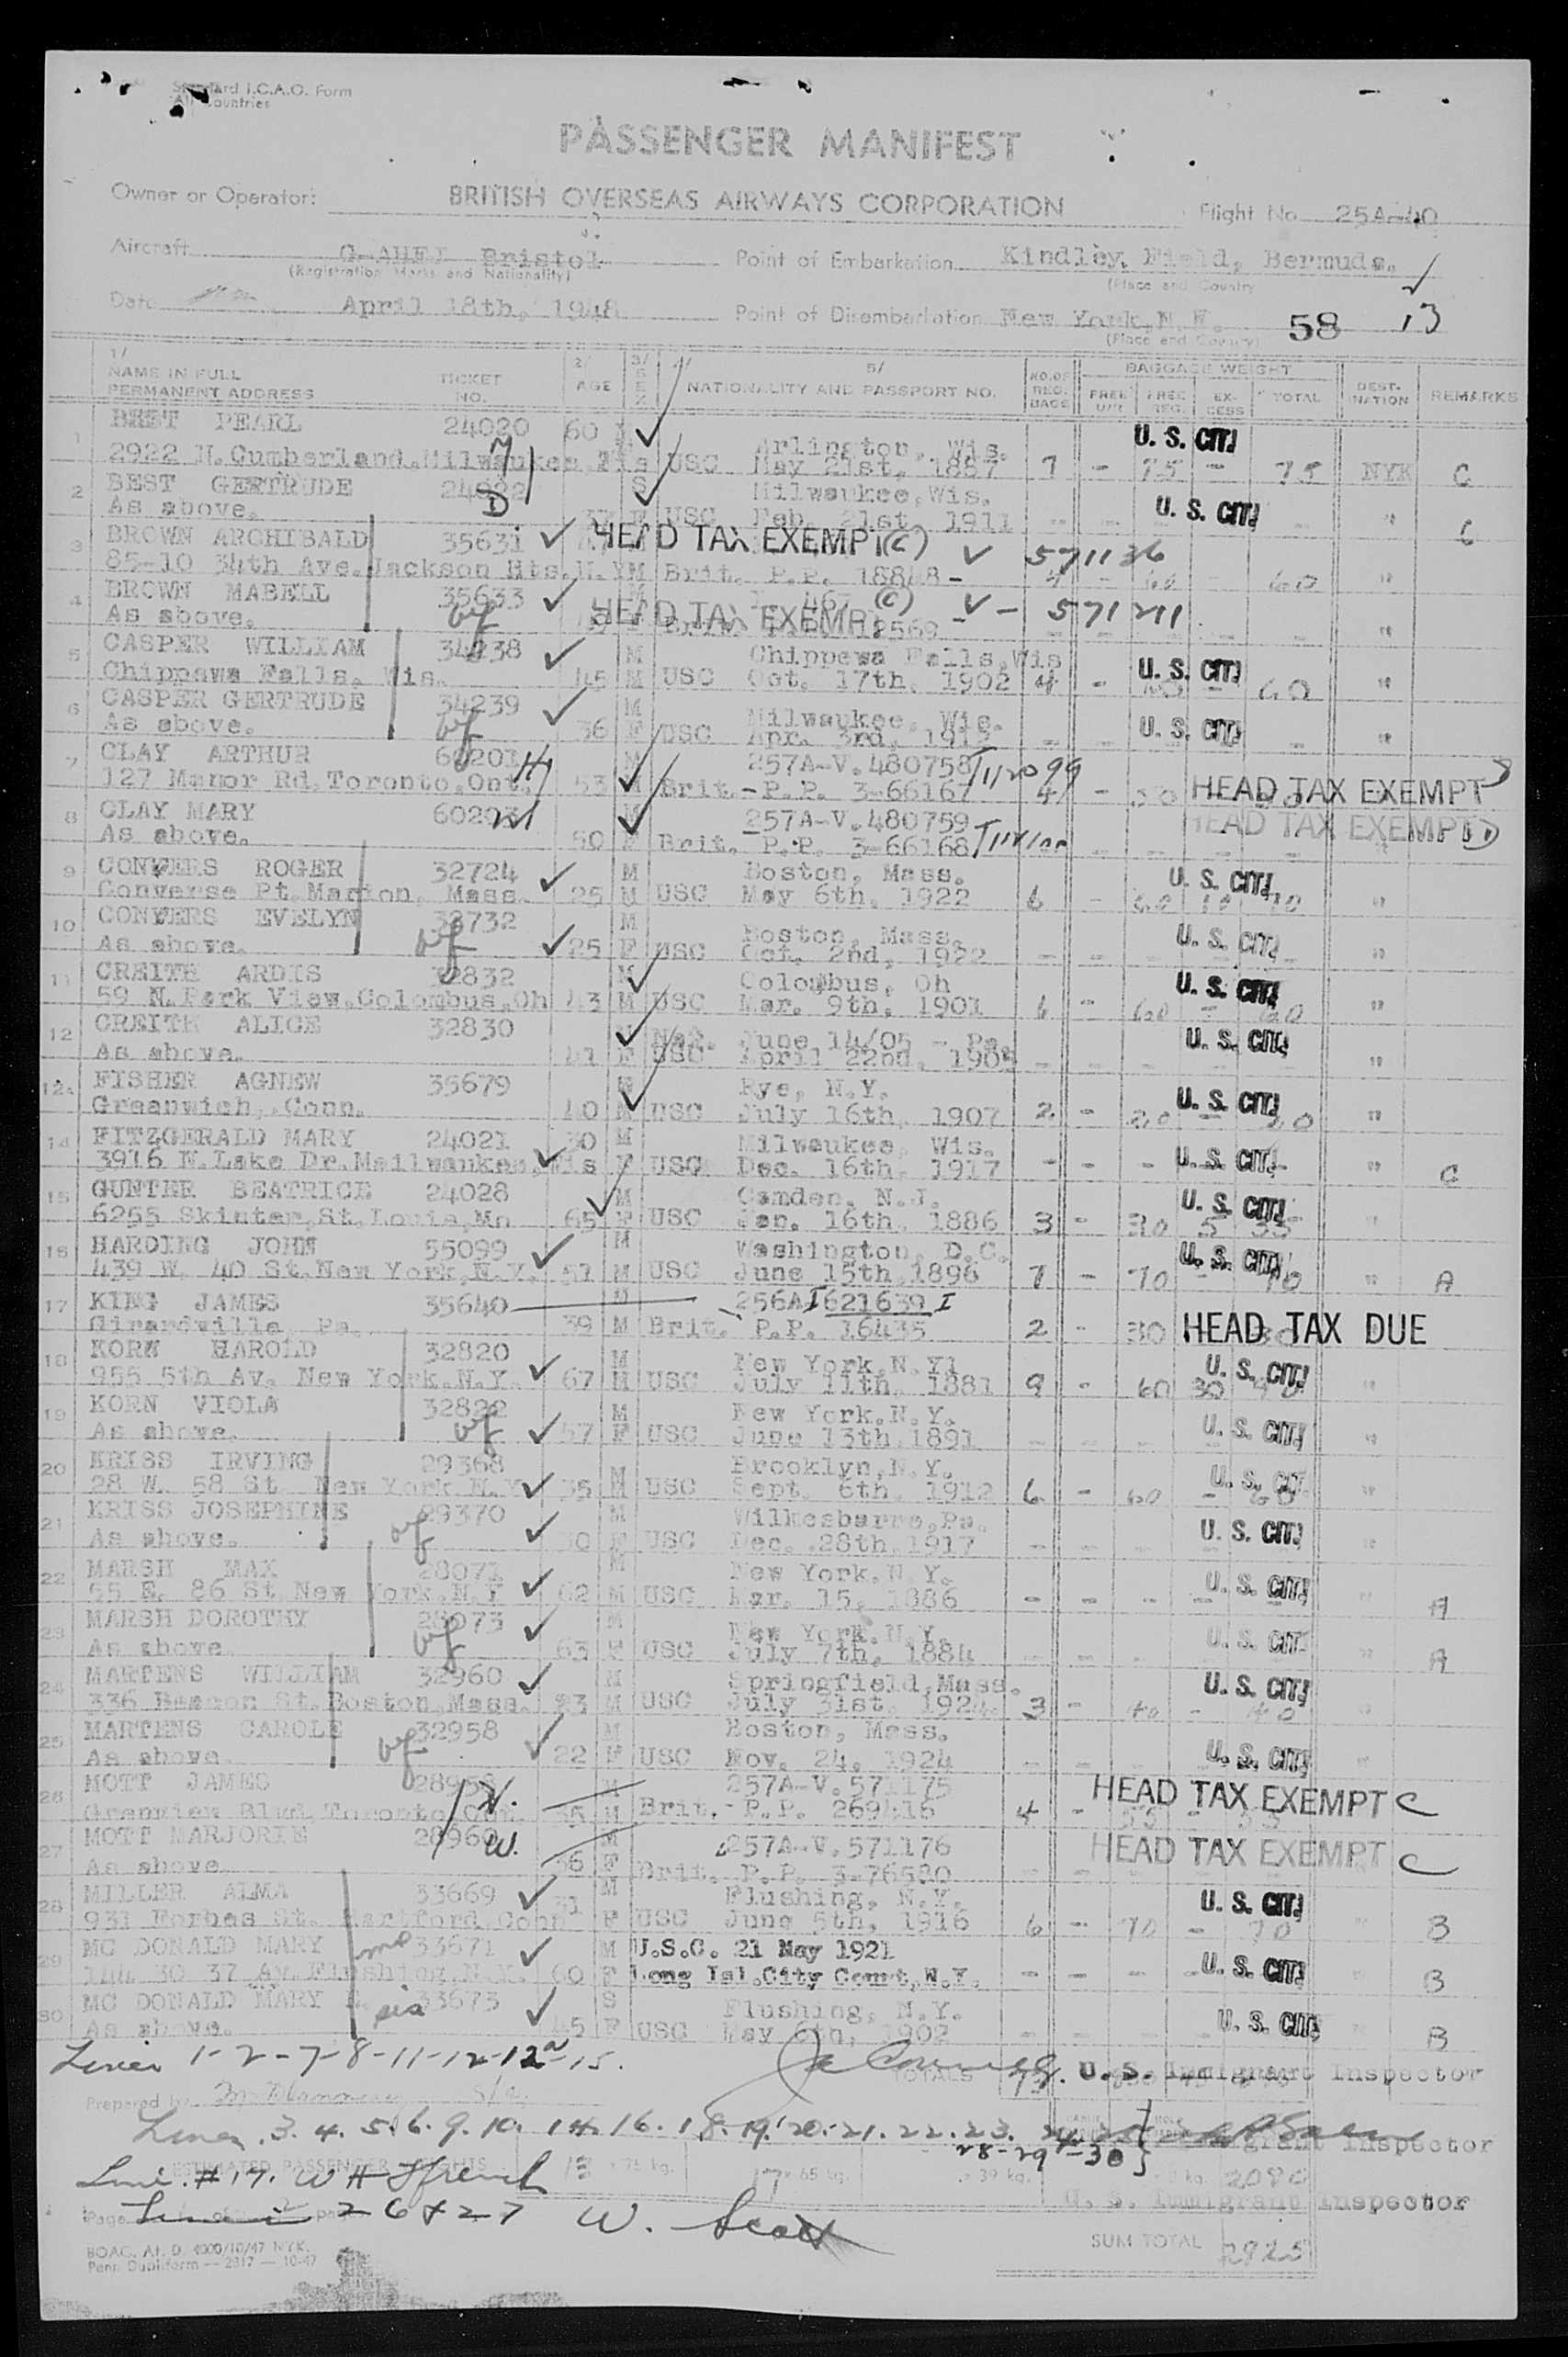 Standard I.C.A.O. Form
All Countries
PASSENGER MANIFEST
Owner or Operator: BRITISH OVERSEAS AIRWAYS CORPORATION Flight No. 25A-40
Aircraft Bristol Point of Embarkation Kindley Field, Bermuda.
(Registration Marks and Nationality) (Place and Country
Date April 18th, 1948 Point of Disembarkation New York, N.Y. 58 13
(Place and Country)
1/ NAME IN FULL PERMANENT ADDRESS TICKET NO. 2/ AGE 3/ SEX 4/ 5/ NATIONALITY AND PASSPORT NO. NO. OF REG. BAGS BAGGAGE WEIGHT FREE U/R FREE REG. EX-CESS TOTAL DEST-INATION REMARKS
1 BEST PEARL 24020 60 Arlington, Wis. U. S. CIT.
2922 N.Cumberland.Milwaukee Wis USC May 21st, 1887 7 - 75 - 75 NYK C
2 BEST GERTRUDE S Milwaukee, Wis.
As above. 37 F USC Feb. 21st 1911 U. S. CIT. "
3 BROWN ARCHIBALD 35631 HEAD TAX EXEMPT (C) 571136
85-10 34th Ave.Jackson Hts.N.Y M Brit. P.P. 18848 - 60 - 60 "
4 BROWN MABELL 35633 HEAD TAX EXEMPT (C) 571211
As above. "
5 CASPER WILLIAM 34238 M Chippewa Falls, Wis
Chippewa Falls. Wis. 45 M USC Oct. 17th, 1902 4 - U. S. CIT. 60 "
6 CASPER GERTRUDE 34239 M Milwaukee, Wis.
As above. wf 36 F USC Apr. 3rd, U. S. CIT. "
7 CLAY ARTHUR 60201 M 257A-V.480758
127 Manor Rd.Toronto.Ont. 53 M Brit.-P.P. 3-66167 4 - HEAD TAX EXEMPT
8 CLAY MARY M 257A-V.480759
As above. 50 F Brit. P.P. 3-66168 HEAD TAX EXEMPT
9 CONVERS ROGER 32724 M Boston, Mass.
Converse Pt.Marion, Mass. 25 M USC May 6th, 1922 6 - 60 10 70 U. S. CIT. "
10 CONVERS EVELYN 32732 M Boston, Mass.
As above. wf 25 F USC Oct. 2nd, 1922 U. S. CIT. "
11 CREITH ARDIS 32832 M Colombus, Oh
59 N.Park View.Colombus.Oh 43 M USC Mar. 9th, 1901 6 - 60 - 60 U. S. CIT. "
12 CREITH ALICE 32830 M Nat. June 14/05 - Pa.
As above. 41 F USC April 22nd, U. S. CIT. "
12a FISHER AGNEW 35679 M Rye, N.Y.
Greenwich, Conn. 40 M USC July 16th, 1907 2 - 20 - 20 U. S. CIT. "
14 FITZGERALD MARY 24021 30 M Milwaukee, Wis.
3916 N.Lake Dr.Mailwaukee Wis F USC Dec. 16th, 1917 - - - U. S. CIT. " C
15 GUNTER BEATRICE 24028 M Camden, N.J.
6255 Skinter, St.Louis, Mo 65 F USC Jan. 16th, 1886 3 - 30 5 35 U. S. CIT. "
16 HARDING JOHN 55099 M Washington, D.C.
439 W. 40 St.New York,N.Y. 51 M USC June 15th,1896 7 - 70 - 70 U. S. CIT. " A
17 KING JAMES 35640 M 256A I 621639 I
Girardville Pa. 39 M Brit. P.P. 16435 2 - 30 HEAD TAX DUE
18 KORN HAROLD 32820 M New York,N.Y1
955 5th Av. New York.N.Y. 67 M USC July 11th, 1881 9 - 60 30 90 U. S. CIT. "
19 KORN VIOLA 32822 M New York.N.Y.
As above. wf 57 F USC June 13th,1891 U. S. CIT. "
20 KRISS IRVING 29368 M Brooklyn,N.Y.
28 W. 58 St. New York N.Y. 35 M USC Sept. 6th, 1912 6 - 60 - 60 U. S. CIT. "
21 KRISS JOSEPHINE 29370 M Wilkesbarre,Pa.
As above. wf 30 F USC Dec. 28th,1917 U. S. CIT. "
22 MARSH MAX 28071 M New York.N.Y.
55 E. 86 St New York.N.Y 62 M USC Mar. 15, 1886 U. S. CIT. " A
23 MARSH DOROTHY 28073 M New York.N.Y.
As above. wf 63 F USC July 7th, 1884 U. S. CIT. " A
24 MARTENS WILLIAM 32960 M Springfield,Mass.
336 Beacon St.Boston,Mass. 23 M USC July 31st, 1924 3 - 40 - 40 U. S. CIT. "
25 MARTENS CAROLE 32958 M Boston, Mass.
As above. wf 22 F USC Nov. 24, 1924 U. S. CIT. "
26 MOTT JAMES M 257A-V.571175
Blvd.Toronto 35 M Brit.- P.P. 269416 4 - 55 - 55 HEAD TAX EXEMPT C
27 MOTT MARJORIE 28960 W. M 257A-V.571176
As above 36 F Brit. P.P. 3-76580 HEAD TAX EXEMPT C
28 MILLER ALMA 33669 31 M Flushing, N.Y.
931 Forbes St. Hartford Conn F USC June 5th, 1916 6 - 70 - 70 U. S. CIT. " B
29 MC DONALD MARY mo 33671 M U.S.C. 21 May 1921
37 Av.Flushing,N.Y. 60 F Long Isl.City Court,N.Y. U. S. CIT. " B
30 MC DONALD MARY sis 33673 S Flushing, N.Y.
As above. 45 F USC May 6th, 1902 U. S. CIT. " B
Lines 1-2-7-8-11-12-12a-15.
TOTALS U. S. Immigrant Inspector
Prepared by
Lines 3. 4. 5. 6. 9. 10. 14. 16. 18. 19. 20. 21. 22. 23. 24 25 Immigrant Inspector
28-29+30
ESTIMATED PASSENGER WEIGHTS 13 x 75 kg. 17 x 65 kg. x 39 kg. kg. 2080
Line #17. W H French
U. S. Immigrant Inspector
Page Lines 26 & 27 W. Scott
SUM TOTAL 2925
BOAC. At. D. 4000/10/47 NYK.
Penn Dupliform — 2817 — 10-47